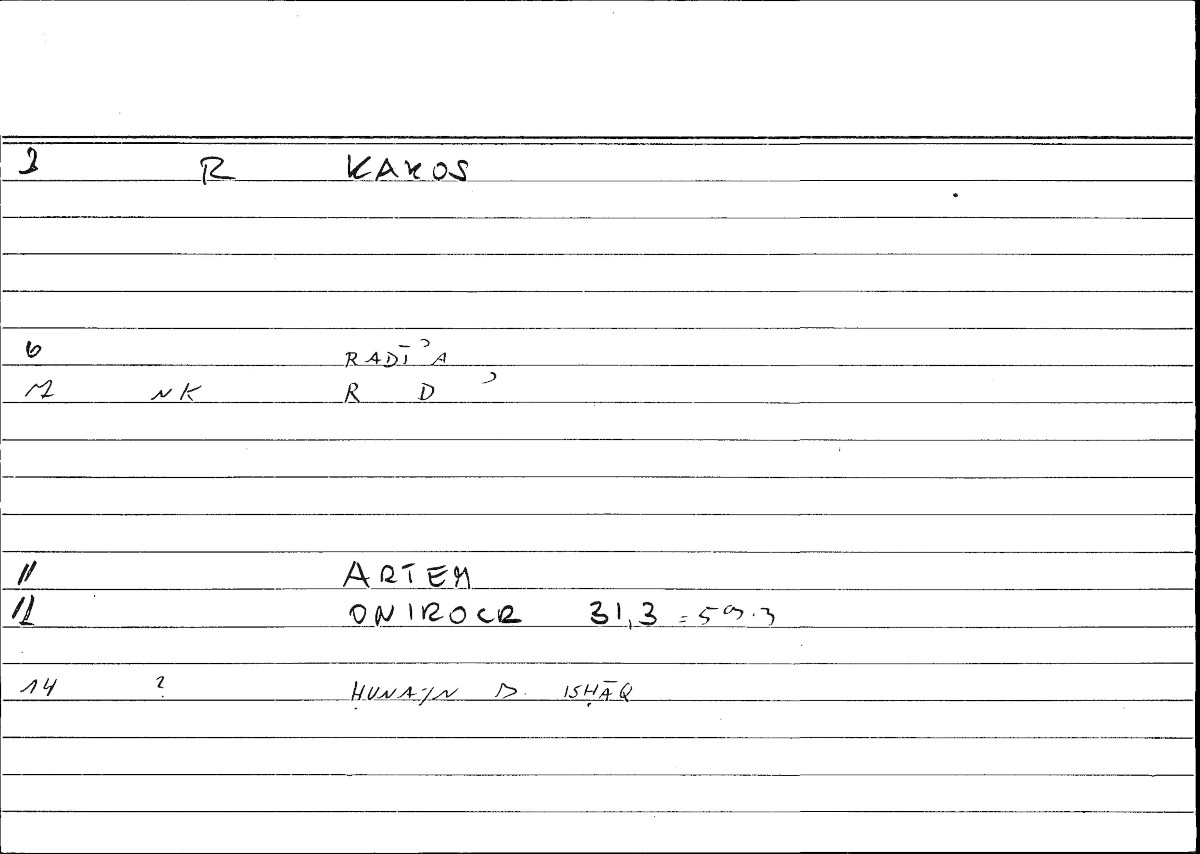 3 R KAKOS
6 RADĪʾA
7 NK R D ʾ
11 ARTEM
12 ONIROCR 31,3 = 59.3
14 ? ḤUNAYN B. ISḤĀQ